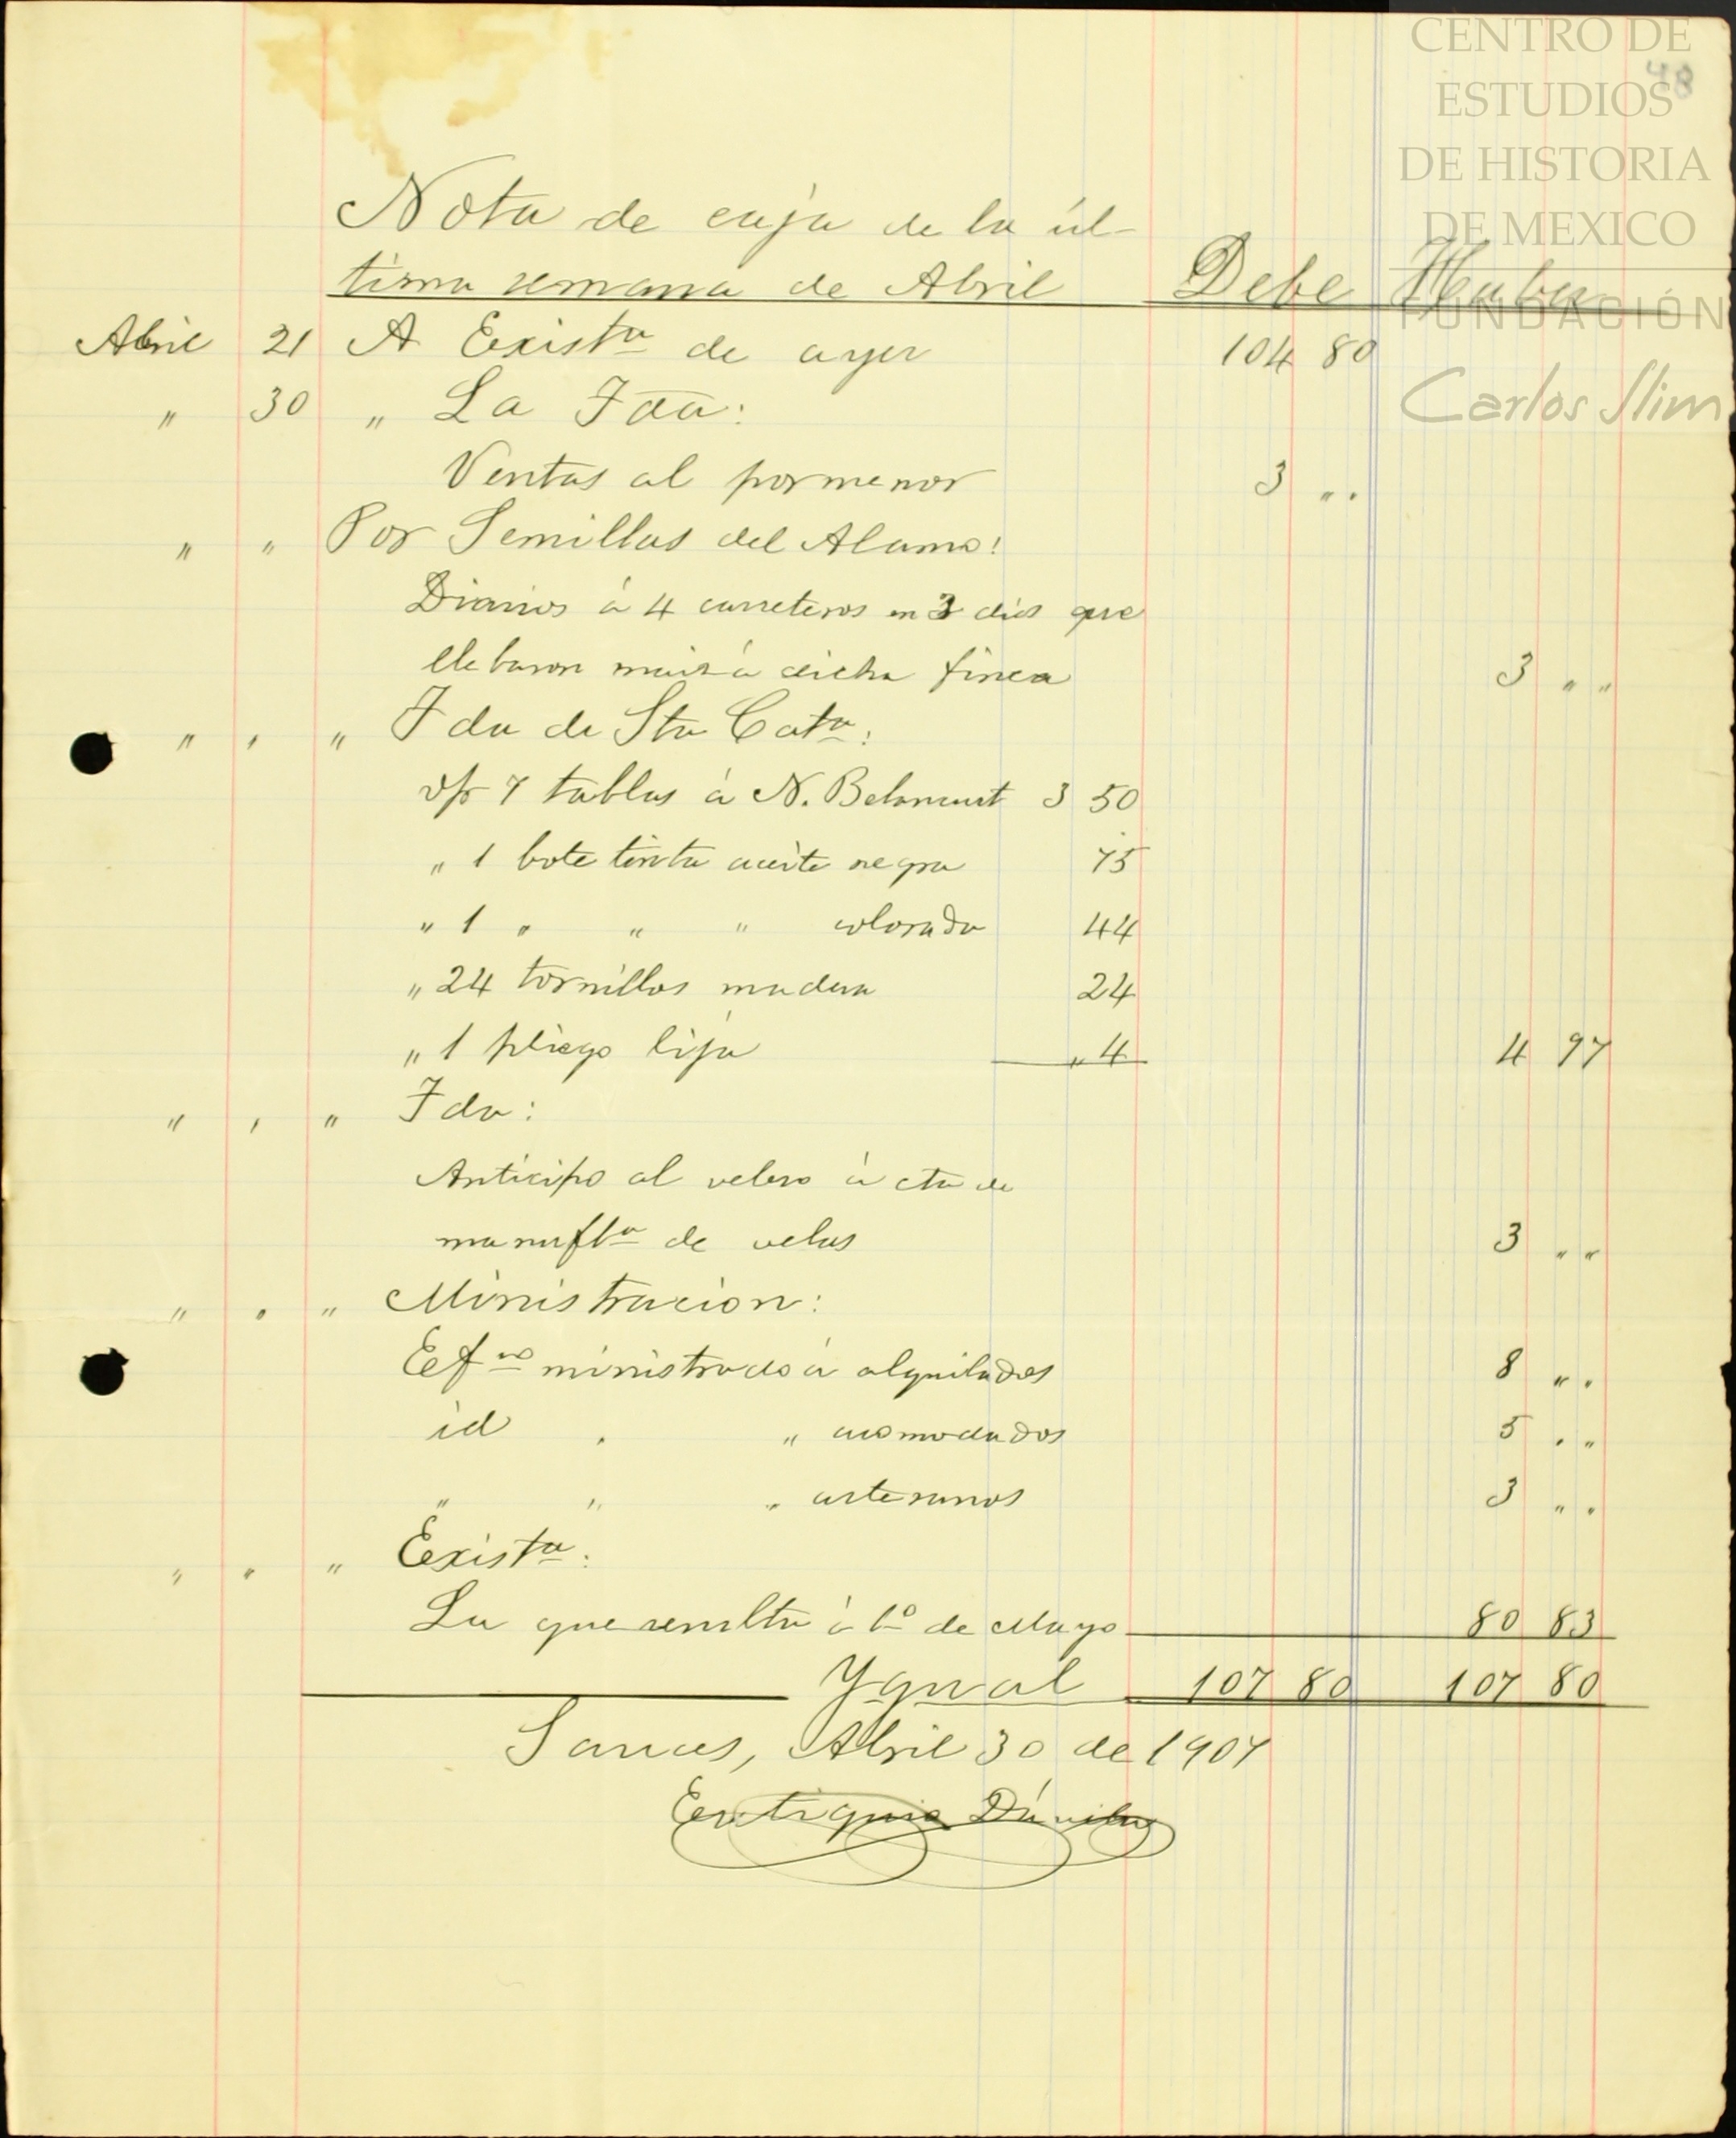 CENTRO DE
ESTUDIOS
DE HISTORIA
DE MEXICO
FUNDACIÓN
Carlos Slim
48
Nota de caja de la úl-
tima semana de Abril Debe Haber
Abril 21 A Existª de ayer 104 80
" 30 " La Fda:
Ventas al pormenor 3 " "
" " Por Semillas del Alamo:
Diarios á 4 carreteros en 3 dias que
llebaron maiz á dicha finca 3 " "
" " " Fda de Sta Catª:
v/r 7 tablas á N. Betancourt 3 50
" 1 bote tinta aceite negra 75
" 1 " " " colorada 44
" 24 tornillos madera 24
" 1 pliego lija " 4 4 97
" " " Fda:
Anticipo al velero á cta de
manuftª de velas 3 " "
" " " Ministracion:
Eefvo ministrado á alquilados 8 " "
id " " acomodados 5 " "
" " " artesanos 3 " "
" " " Existª:
La que resulta á 1º de Mayo 80 83
Ygual 107 80 107 80
Sauces, Abril 30 de 1907
Eutiquio Dávila